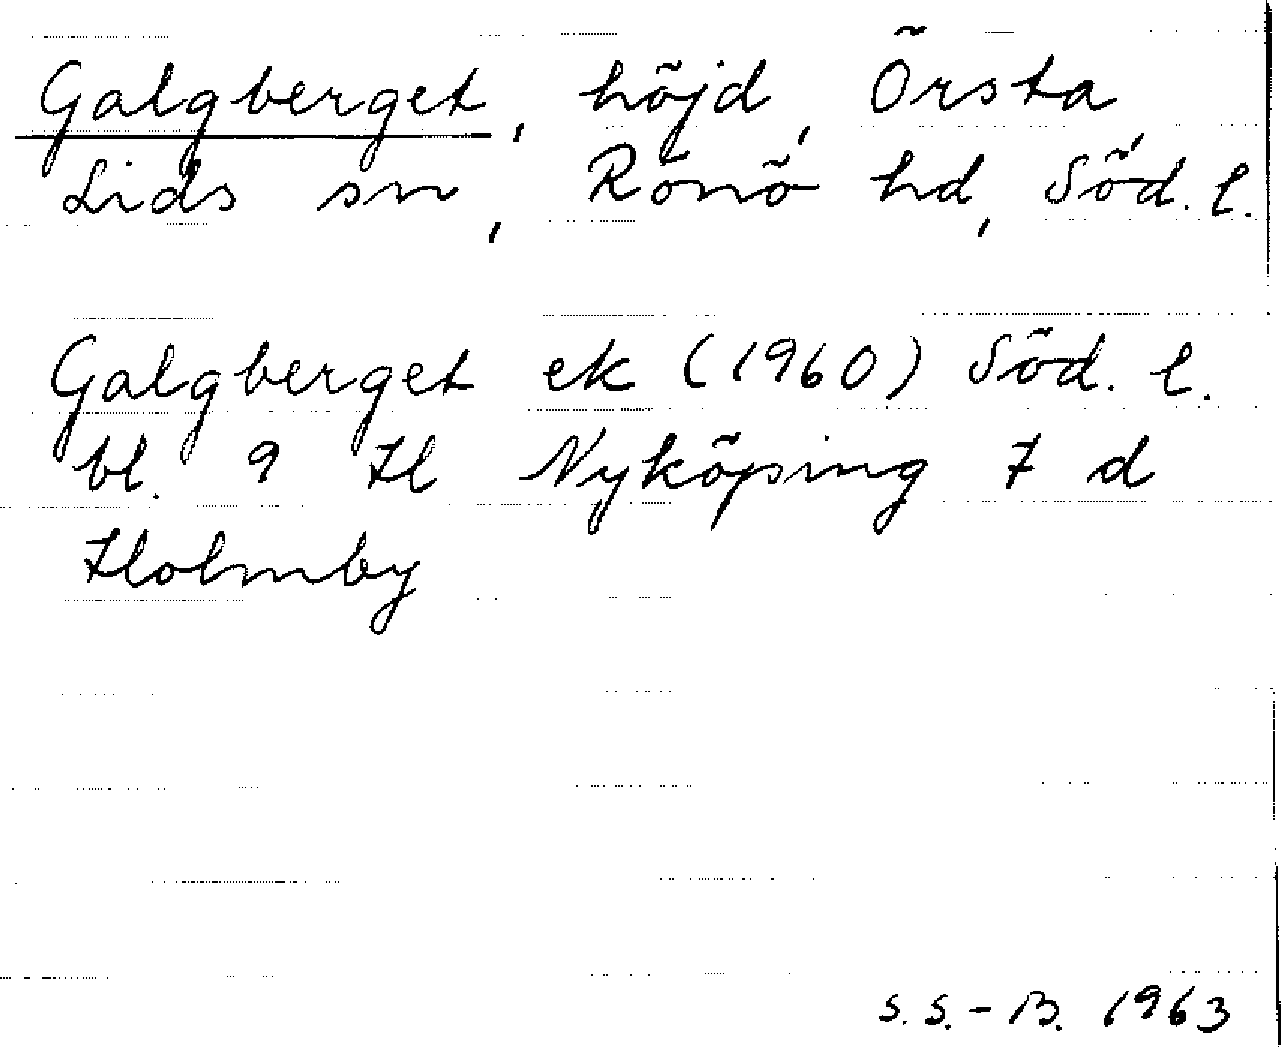 Galgberget, höjd, Örsta,
Lids sn, Rönö hd, Söd. l.
Galgberget ek (1960) Söd. l.
bl. 9 H Nyköping 7 d
Holmby
S.S.-B. 1963